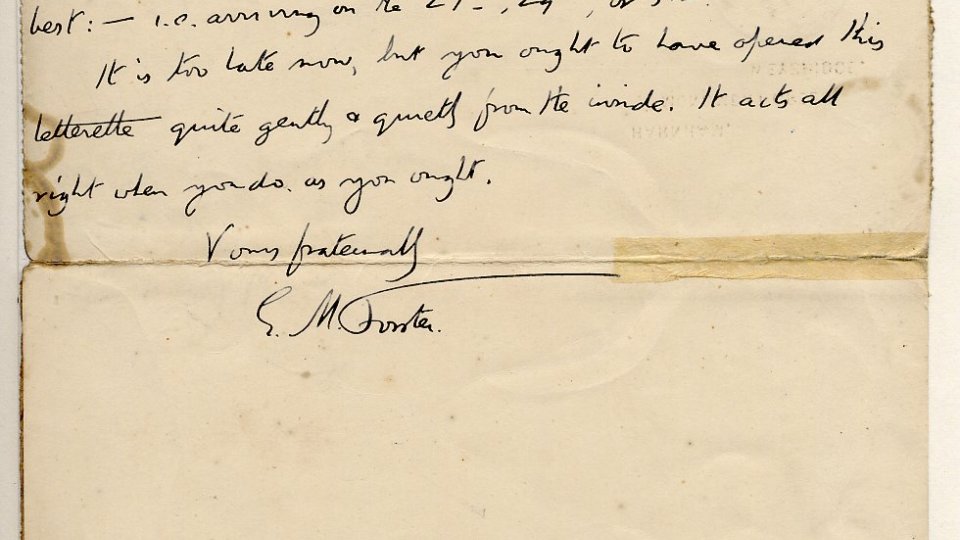 best: — i.e. arriving on the
It is too late now, but you ought to have opened this
letterette quite gently & quietly from the inside. It acts all
right when you do. as you ought.
Yours fraternally
E. M. Forster.